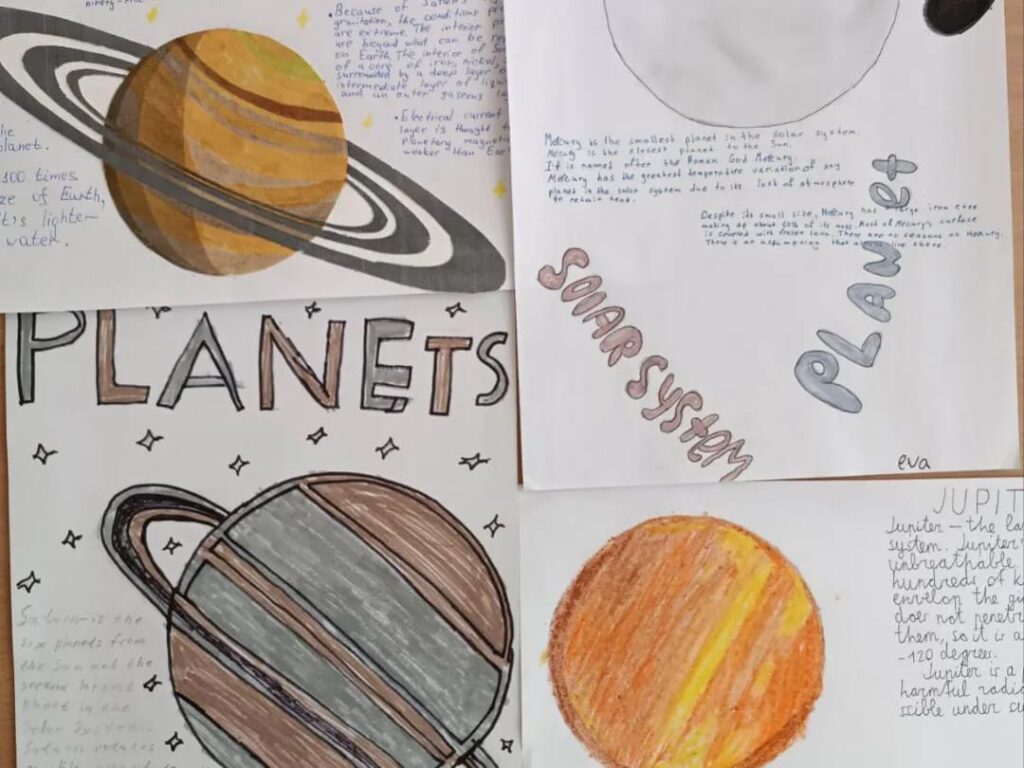 ninety-five
the
planet.
100 times
ze of Earth,
it is lighter
water.
• Because of Saturn's
gravitation, the conditions
are extreme. The interior
are beyond what can be
on Earth. The interior of
of a core of iron, nickel,
surrounded by a deep layer
intermediate layer of
and an outer gaseous
• Electrical current
layer is thought
planetary
weaker than
Mercury is the smallest planet in the solar system.
is the closest planet to the Sun.
It is named after the Roman God Mercury.
Mercury has the greatest temperature variation of any
planet in the solar system due to its lack of atmosphere
to retain heat.
Despite its small size, Mercury has large iron core
making up about of its mass. Most of Mercury's surface
is covered with frozen lava. There are no seasons on Mercury.
There is no
SOlAR SYSteM
PLANet
eva
PLANETS
Saturn is the
six planets from
the Sun and the
second largest
planet in the
Solar System.
Saturn rotates
JUPIT
Jupiter – the la
system. Jupiter'
unbreathable
hundreds of k
envelop the gi
does not penetr
them, so it is a
-120 degrees.
Jupiter is a
harmful radia
ssible under su